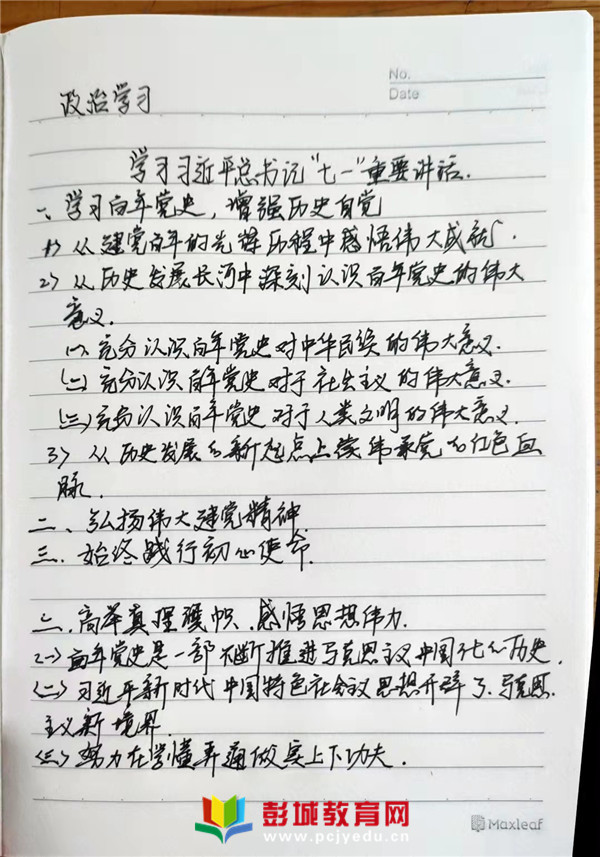 No.
Date
政治学习
学习习近平总书记“七一”重要讲话.
一、学习百年党史，增强历史自觉
1> 从建党百年的光辉历程中感悟伟大成就.
2> 从历史发展长河中深刻认识百年党史的伟大
意义.
(一)、充分认识百年党史对中华民族的伟大意义.
(二) 充分认识百年党史对于社会主义的伟大意义.
(三) 充分认识百年党史对于人类文明的伟大意义.
3> 从历史发展的新起点上 党的红色血
脉.
二、弘扬伟大建党精神.
三、始终践行初心使命.
二、高举真理旗帜、感悟思想伟力.
<一> 百年党史是一部不断推进马克思主义中国化的历史.
<二> 习近平新时代中国特色社会主义思想开辟了马克思
主义新境界.
<三> 努力在学懂弄通做实上下功夫.
彭城教育网
www.pcjyedu.cn
Maxleaf